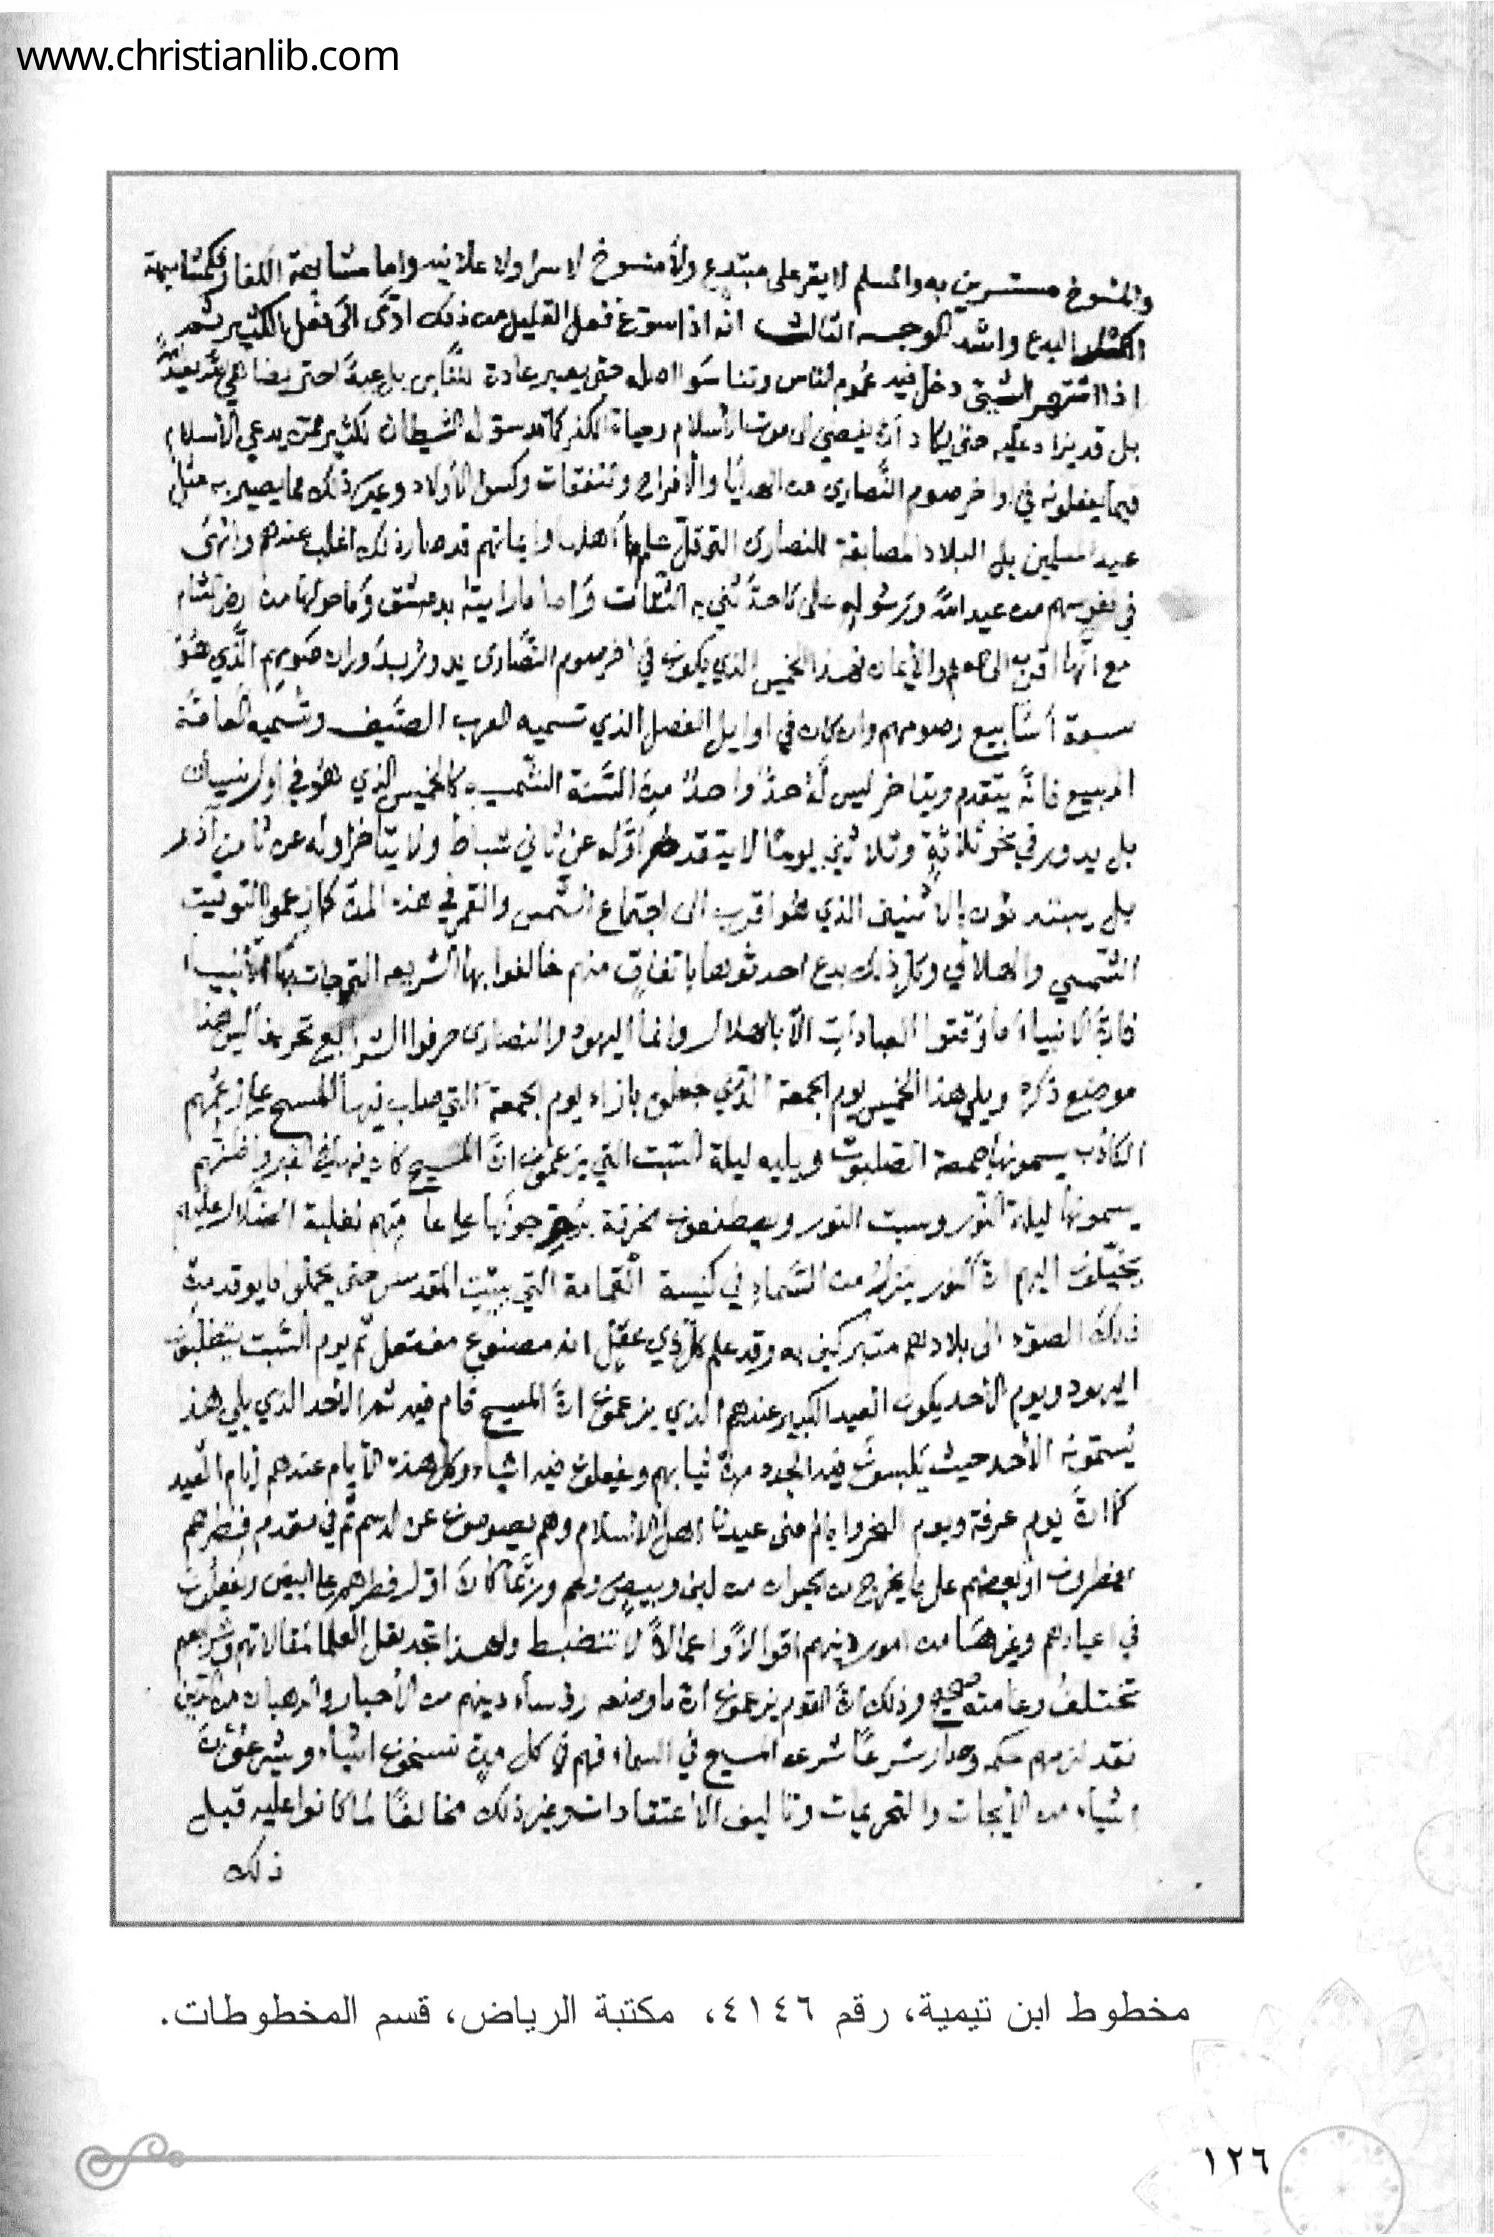 www.christianlib.com
والمنسوخ مستسرين به والمسلم لا يقر على مبتدع ولا منسوخ لا سرا ولا علانية واما مشابهة الكفار فكمشابهة
البدع واشد الوجه الثالث انه اذا سوغ فعل القليل من ذلك ادى الى فعل الكثير ثم
اذا اشتهر الشيئ دخل فيه عموم الناس وتناسوا اصله حتى يصير عادة للناس بل عيدا حتى يضاهي
بل قد يزاد عليه حتى يكاد أن يفضي الى موت الأسلام وحياة الكفر كما قد سوله الشيطان لكثير ممن يدعي الأسلام
فيما يفعلونه في اواخر صوم النصارى من الهدايا والافراح والنفقات وكسوة الأولاد وغير ذلك مما يصير به مثل
عيد المسلمين بل البلاد المصاقبة للنصارى التي قل علم أهلها وايمانهم قد صار ذلك اغلب عندهم وابهى
في نفوسهم من عيد الله ورسوله على ما حدثني به الثقات واما ما رايته بدمشق وما حولها من ارض الشام
مع انها اقرب الى العلم والأيمان فهذا الخميس الذي يكون في اخر صوم النصارى يدور بدوران صومهم الذي هو
سبعة أسابيع وصومهم وان كان في اوايل الفصل الذي تسميه العرب الصيف وتسميه العامة
الربيع فانه يتقدم ويتاخر ليس له حد واحد من السنة الشمسيه كالخميس الذي هو في اول نيسان
بل يدور في نحو ثلاثة وثلاثين يوما لا يتقدم اوله عن ثاني شباط ولا يتاخر اوله عن ثامن اذار
بل يبتدئون بالاثنين الذي هو اقرب الى اجتماع الشمس والقمر في هذه المدة كما زعموا التوقيت
الشمسي والهلالي وكل ذلك بدع احدثوها باتفاق منهم خالفوا بها الشريعه التي جات بها الأنبيا
فان الانبياء ما وقتوا العبادات الا بالهلال وانما اليهود والنصارى حرفوا الشرايع تحريفا ليس هذا
موضع ذكره ويلي هذا الخميس يوم الجمعة الذي جعلوه بازاء يوم الجمعة التي صلب فيها المسيح على زعمهم
الكاذب يسمونها جمعة الصلبوت ويليه ليلة السبت التي يزعمون ان المسيح كان فيه في القبر واظنهم
يسمونها ليلة النور وسبت النور ويصطنعون مخرقة يروجونها على عامتهم لغلبة الضلال عليهم
يخيلون اليهم ان النور ينزل من السماء في كنيسة القمامة التي ببيت المقدس حتى يحملوا ما يوقد من
ذلك الضوء الى بلادهم متبركين به وقد علم كل ذي عقل انه مصنوع مفتعل ثم يوم السبت يتطلبون
اليهود ويوم الأحد يكون العيد الكبير عندهم الذي يزعمون ان المسيح قام فيه ثم الأحد الذي يلي هذا
يسمونه الأحد حيث يلبسون فيه الجدد من ثيابهم ويفعلون فيه اشياء وكل هذه الأيام عندهم ايام العيد
كما ان يوم عرفة ويوم النحر وايام منى عيدنا اهل الاسلام وهم يصومون عن الدسم ثم في مقدم فطرهم
يفطرون او بعضهم على ما يخرج من الحيوان من لبن وبيض ولحم وربما كان اول فطرهم على البيض ويفعلون
في اعيادهم وغيرها من امور دينهم اقوالا واعمالا لا تنضبط ولهذا تجد نقل العلما لمقالاتهم وشرايعهم
تختلف وعامته صحيح وذلك ان القوم يزعمون ان ما وضعه رؤساء دينهم من الأحبار والرهبان من الدين
فقد لزمهم حكمه وصار شرعا شرعه المسيح في السماء فهم في كل مدة ينسخون اشياء ويشرعون
اشياء من الأيجابات والتحريمات وتاليف الاعتقادات وغير ذلك مخالفا لما كانوا عليه قبل
ذلك
مخطوط ابن تيمية، رقم ٤١٤٦، مكتبة الرياض، قسم المخطوطات.
١٢٦